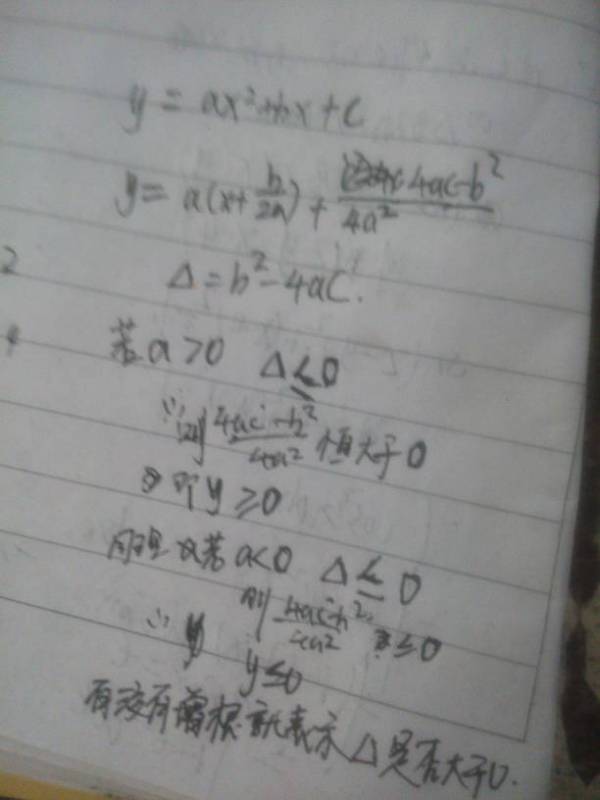 y = ax²+bx+c
y = a(x+b/2a) + 4ac-b²/4a²
2
Δ = b²-4ac.
若a>0 Δ≤0
∵则 4ac-b²/4a² 恒大于0
即y≥0
同理 若a<0 Δ≤0
则 4ac-b²/4a² ≤0
∴ y≤0
有没有增根就表示Δ是否大于0.